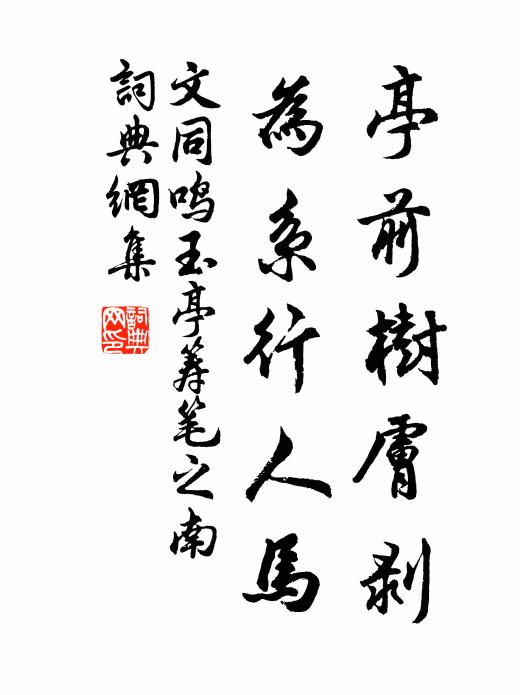 亭前樹膚剥
為系行人馬
文同鸣玉亭筹笔之南
詞典網集
詞典网印